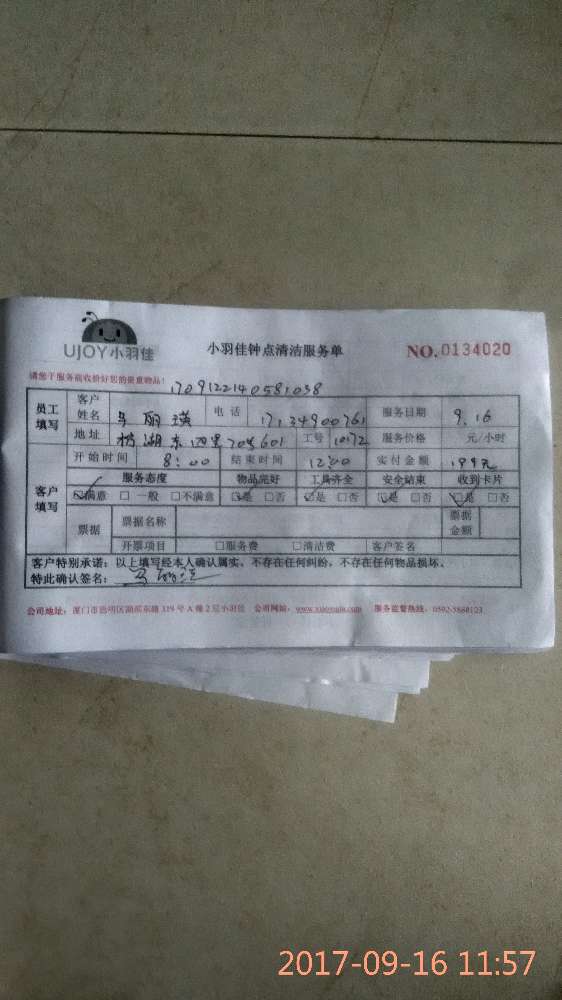 UJOY小羽佳
小羽佳钟点清洁服务单
NO.0134020
请您于服务前收拾好您的贵重物品!
1709122140581038
员工填写
客户姓名 马丽璜 电话 17134900761 服务日期 9.16
地址 湖东四里70号601 工号 10172 服务价格 元/小时
客户填写
开始时间 8:00 结束时间 12:00 实付金额 199元
服务态度 物品完好 工具齐全 安全结束 收到卡片
☑满意 □一般 □不满意 ☑是 □否 ☑是 □否 ☑是 □否 ☑是 □否
票据 票据名称 票据金额
开票项目 □服务费 □清洁费 客户签名
客户特别承诺:以上填写经本人确认属实,不存在任何纠纷,不存在任何物品损坏。
特此确认签名:
公司地址:厦门市思明区湖滨东路319号A幢2层小羽佳 公司网站: 服务监督热线:0592-5868123
2017-09-16 11:57